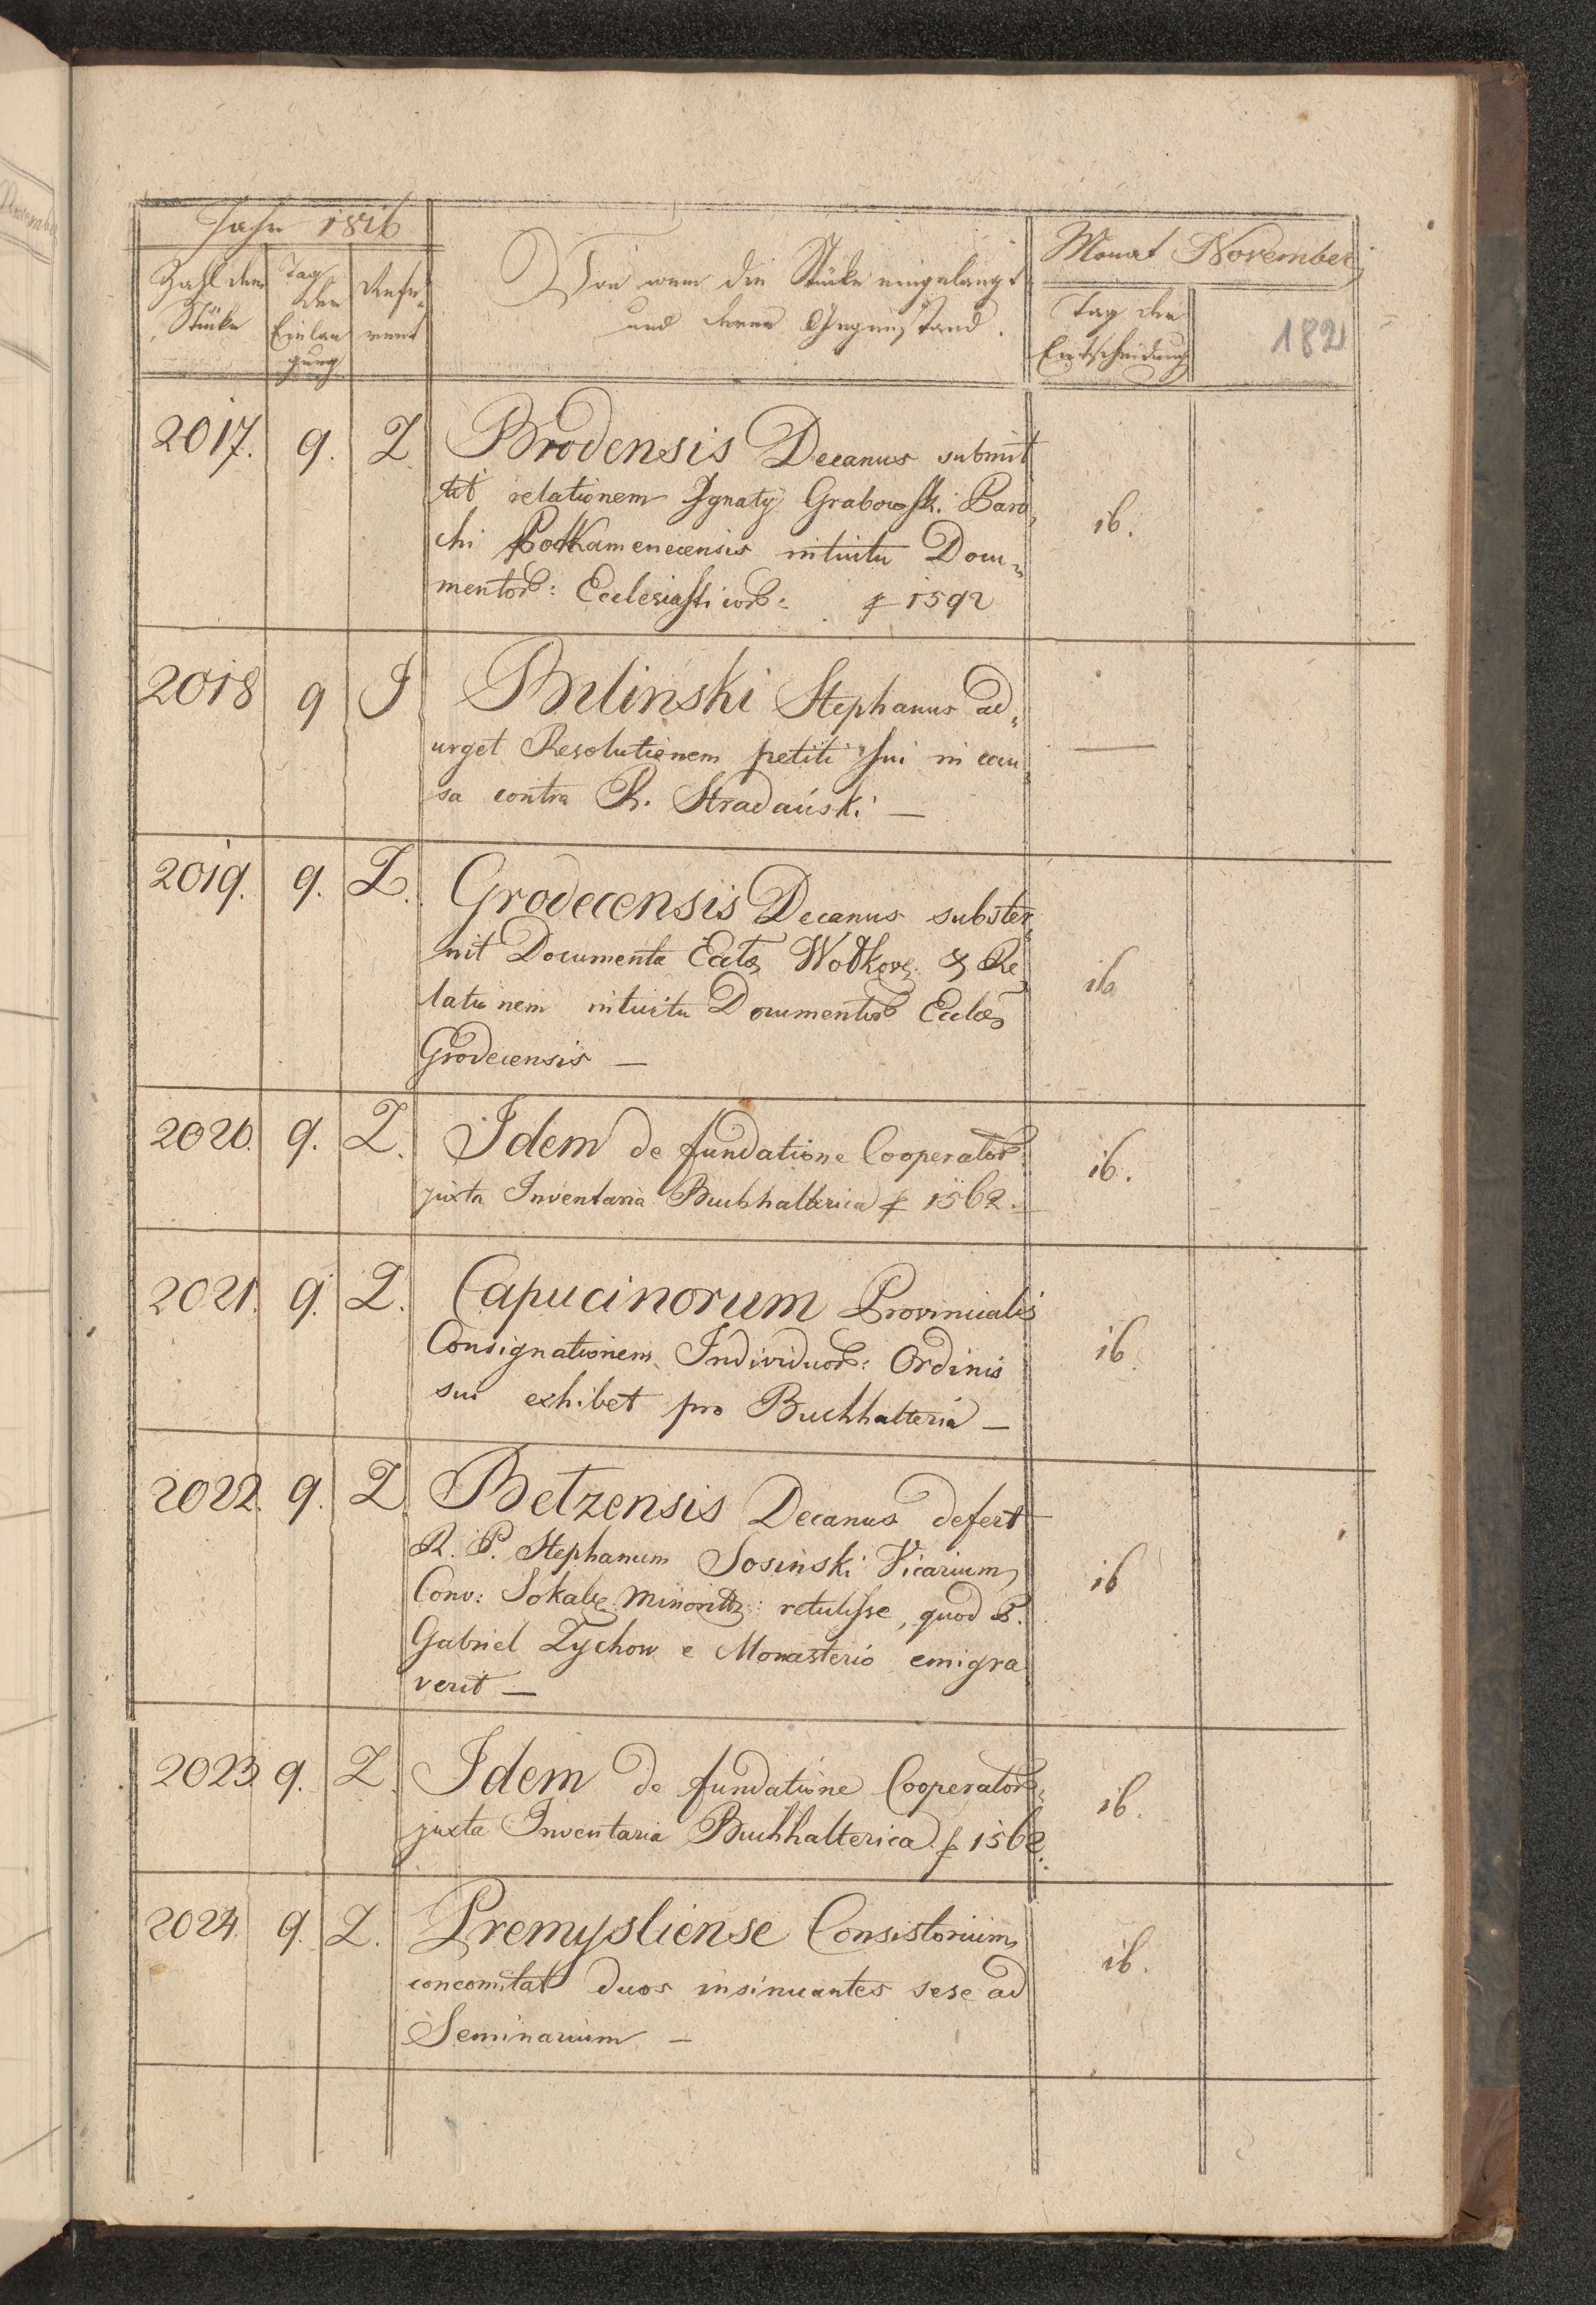 Jahr 1816
Zahl der
Stücke
Tag
der
Einlan
gung
Refe-
rent
Von wem die Stücke eingelangt
und deren Gegenstand.
Monat November
Tag der
Entscheidung
182
2017. 9. Z Brodensis Decanus submit
tit relationem Ignatÿ Grabowski Paro,
chi Podkamenecensis intuitu Docu„
mentor: Ecclesiasticor: f 1592
ib.
2018 9 J Bilinski Stephanus ad„
urget Resolutionem petiti sui in cau„
sa contra R. Stradański —
—
2019. 9. Z. Grodecensis Decanus subster„
nit Documenta Eccl Wolkov: & Re„
lationem intuitu Documentor Eccles
Grodecensis —
ib
2020. 9. Z. Idem de fundatione Cooperator:
juxta Inventaria Buchhalterica f 1562.
ib.
2021. 9. Z. Capucinorum Provincialis
Consignationem Individuor: Ordinis
sui exhibet pro Buchhalteria —
ib.
2022. 9. Z Betzensis Decanus defert
R. P. Stephanum Sosinski Vicarium
Conv: Sokal: Minorit: retulisse, quod P.
Gabriel Zychow e Monasterio emigra
verit —
ib
2023. 9. Z. Idem de fundatione Cooperator:
juxta Inventaria Buchhalterica f 1562.
ib.
2024. 9. Z. Premysliense Consistorium
concomitat duos insinuantes sese ad
Seminarium —
ib.